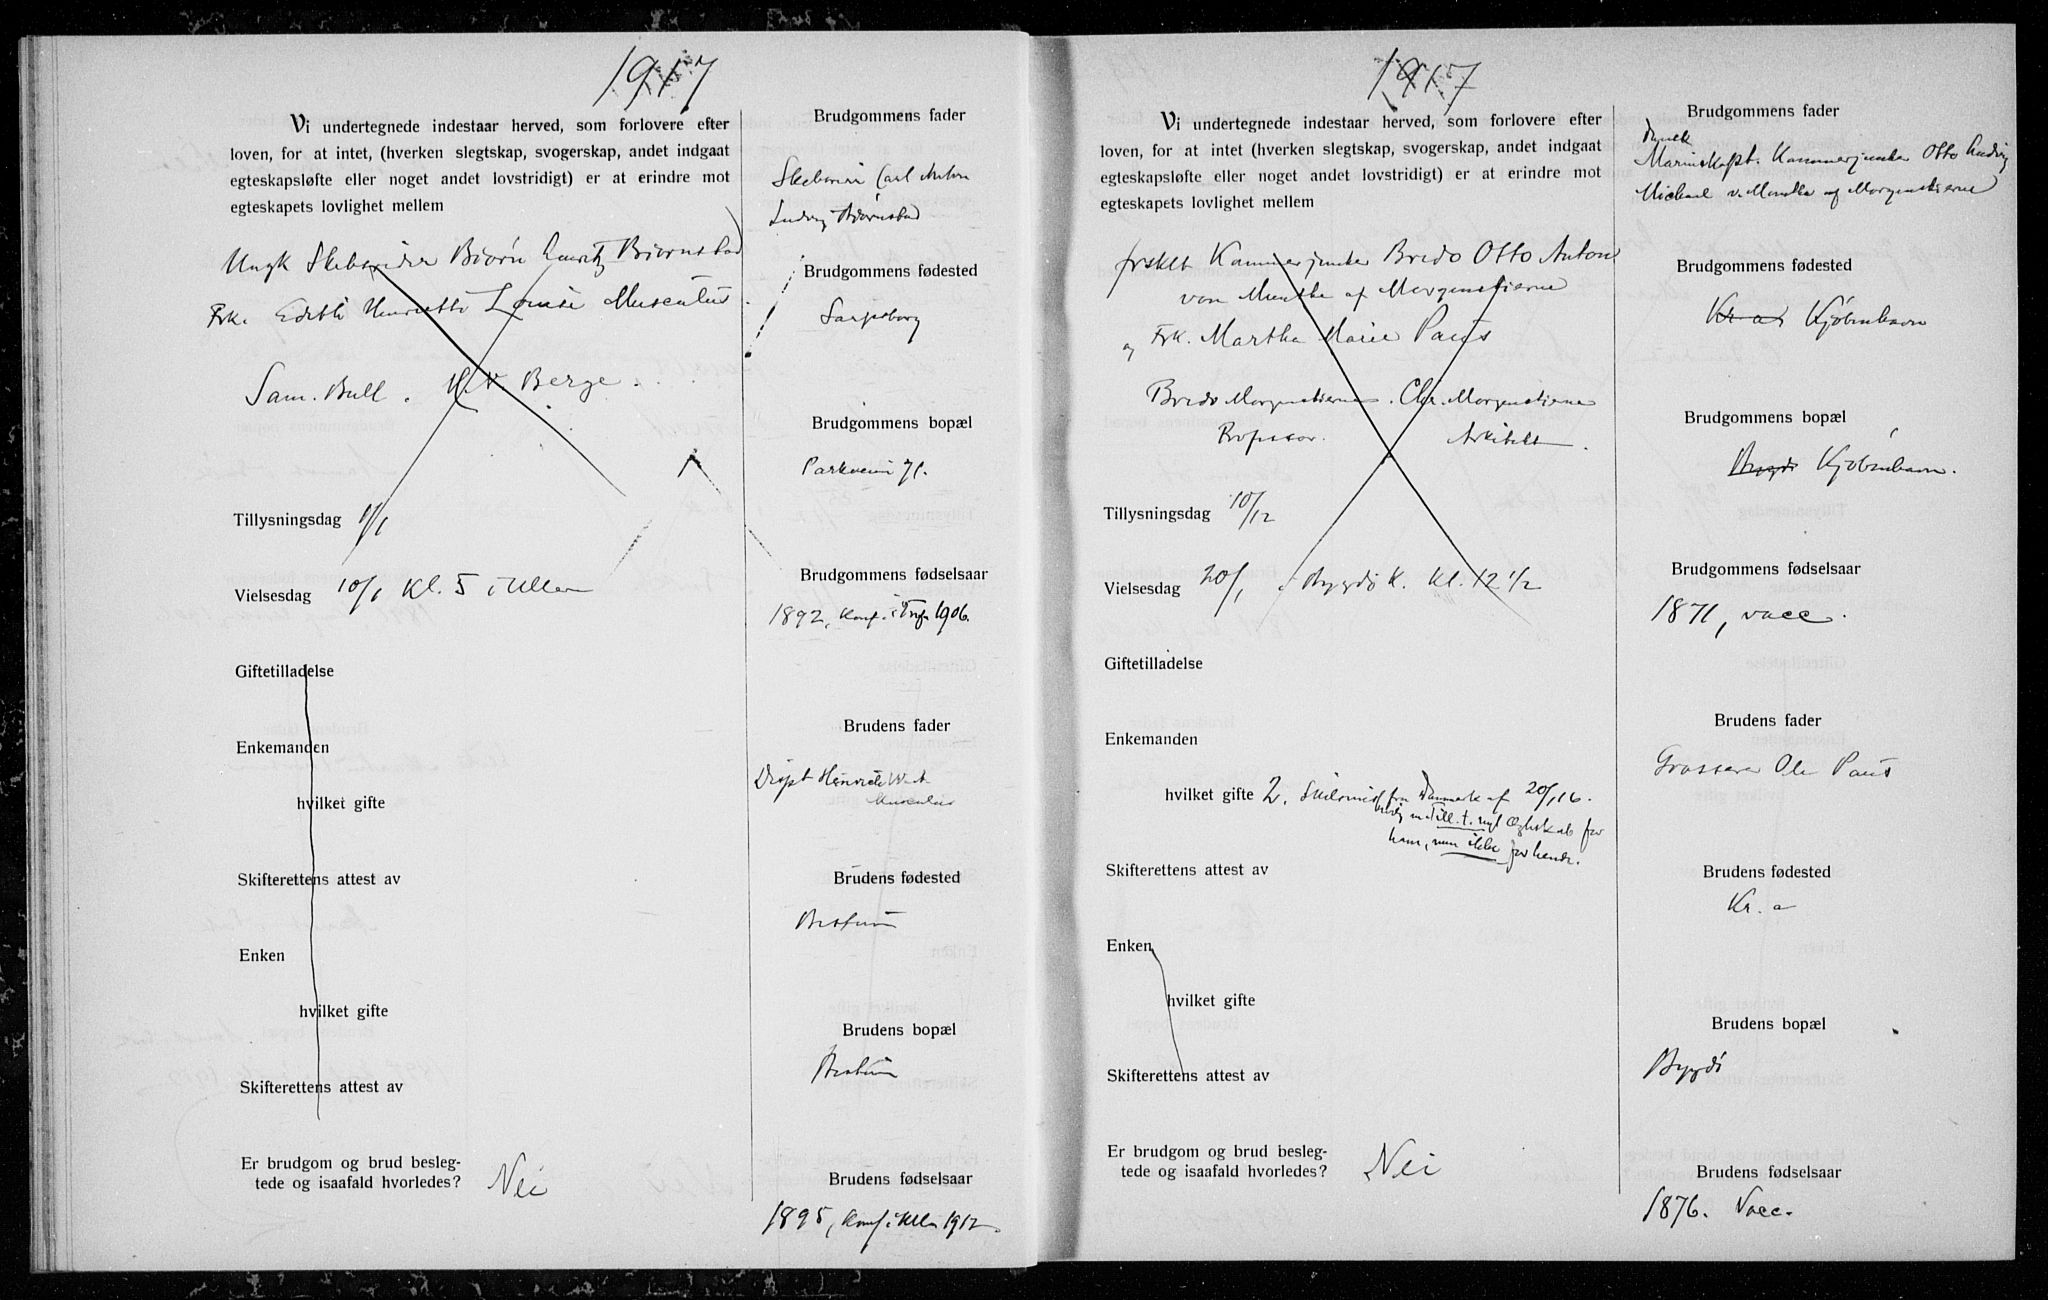 1917
Vi undertegnede indestaar herved, som forlovere efter
loven, for at intet, (hverken slegtskap, svogerskap, andet indgaat
egteskapsløfte eller noget andet lovstridigt) er at erindre mot
egteskapets lovlighet mellem
Ungk Skibsreder Biørn Bjørnstad
Frk. Edith Henriette Louise Musculus
Sam. Bull. Berge.
Tillysningsdag 1/1
Vielsesdag 10/1 Kl. 5 i Ullern
Giftetilladelse
Enkemanden
hvilket gifte
Skifterettens attest av
Enken
hvilket gifte
Skifterettens attest av
Er brudgom og brud besleg-
tede og isaafald hvorledes? Nei
Brudgommens fader
Skibsreder Carl Anton
Ludvig Bjørnstad
Brudgommens fødested
Sarpsborg
Brudgommens bopæl
Parkveien 71.
Brudgommens fødselsaar
1892, Konf. i 1906.
Brudens fader
Henrich
Musculus
Brudens fødested
Bestum
Brudens bopæl
Bestum
Brudens fødselsaar
1895, Konf. i Ullern 1912.
1917
Vi undertegnede indestaar herved, som forlovere efter
loven, for at intet, (hverken slegtskap, svogerskap, andet indgaat
egteskapsløfte eller noget andet lovstridigt) er at erindre mot
egteskapets lovlighet mellem
frsklt Kammerjunker Bredo Otto Anton
von Munthe af Morgenstierne
og Frk. Martha Marie Paus
Bredo Morgenstierne. Chr. Morgenstierne
Professor. Arkitekt.
Tillysningsdag 10/12
Vielsesdag 20/1 i Bygdø K. Kl. 12 1/2
Giftetilladelse
Enkemanden
hvilket gifte 2, Skilsmisse fra Danmark af 20/1 16.
Till. t. nyt Ægteskab for
ham, men ikke for hende.
Skifterettens attest av
Enken
hvilket gifte
Skifterettens attest av
Er brudgom og brud besleg-
tede og isaafald hvorledes? Nei
Brudgommens fader
Dansk
Marinekapt. Kammerjunker Otto Ludvig
Michael v. Munthe af Morgenstierne
Brudgommens fødested
Kr.a. Kjøbenhavn
Brudgommens bopæl
Bygdø Kjøbenhavn.
Brudgommens fødselsaar
1871, vacc.
Brudens fader
Grosserer Ole Paus
Brudens fødested
Kr. a
Brudens bopæl
Bygdø
Brudens fødselsaar
1876. Vacc.